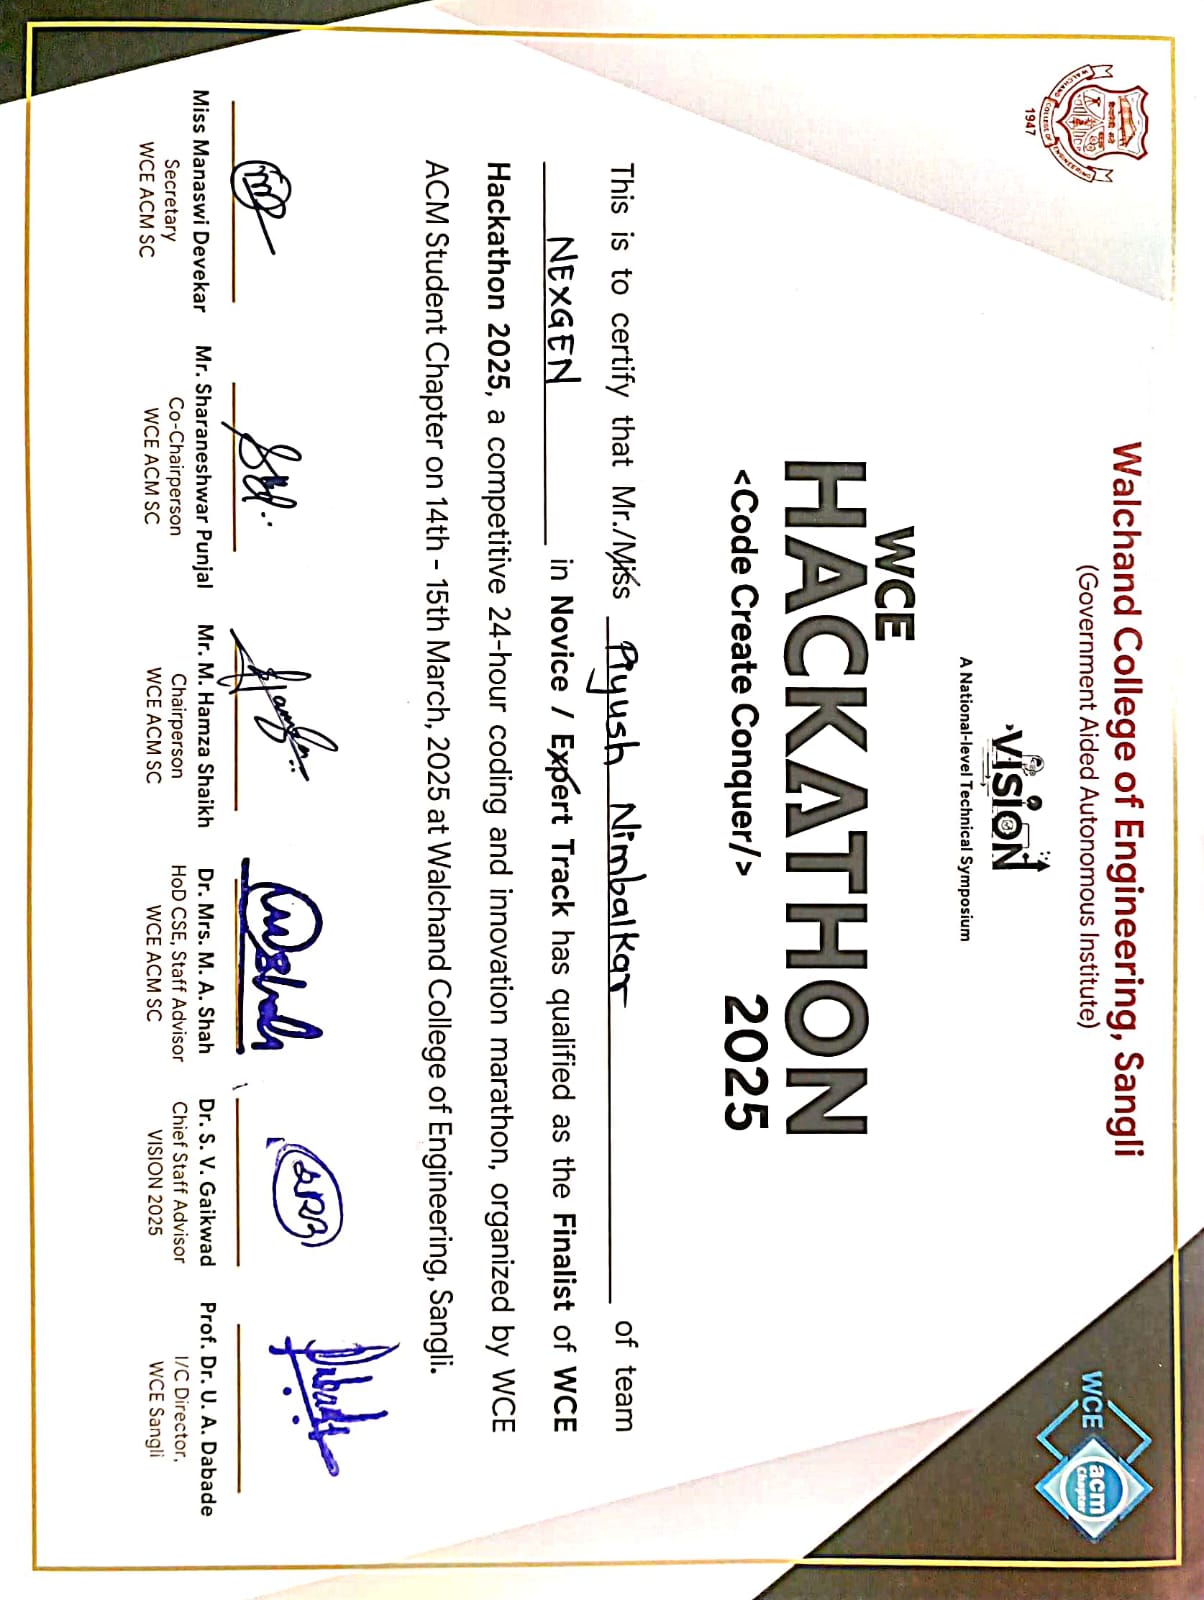 Walchand College of Engineering, Sangli
(Government Aided Autonomous Institute)
WALCHAND COLLEGE OF ENGINEERING
1947
WCE acm
Chapter
VISION
A National-level Technical Symposium
WCE
HACKATHON
<Code Create Conquer/> 2025
This is to certify that Mr./Miss Piyush Nimbalkar of team
NEXGEN in Novice / Expert Track has qualified as the Finalist of WCE
Hackathon 2025, a competitive 24-hour coding and innovation marathon, organized by WCE
ACM Student Chapter on 14th - 15th March, 2025 at Walchand College of Engineering, Sangli.
Miss Manaswi Devekar
Secretary
WCE ACM SC
Mr. Sharaneshwar Punjal
Co-Chairperson
WCE ACM SC
Mr. M. Hamza Shaikh
Chairperson
WCE ACM SC
Dr. Mrs. M. A. Shah
HoD CSE, Staff Advisor
WCE ACM SC
Dr. S. V. Gaikwad
Chief Staff Advisor
VISION 2025
Prof. Dr. U. A. Dabade
I/C Director,
WCE Sangli